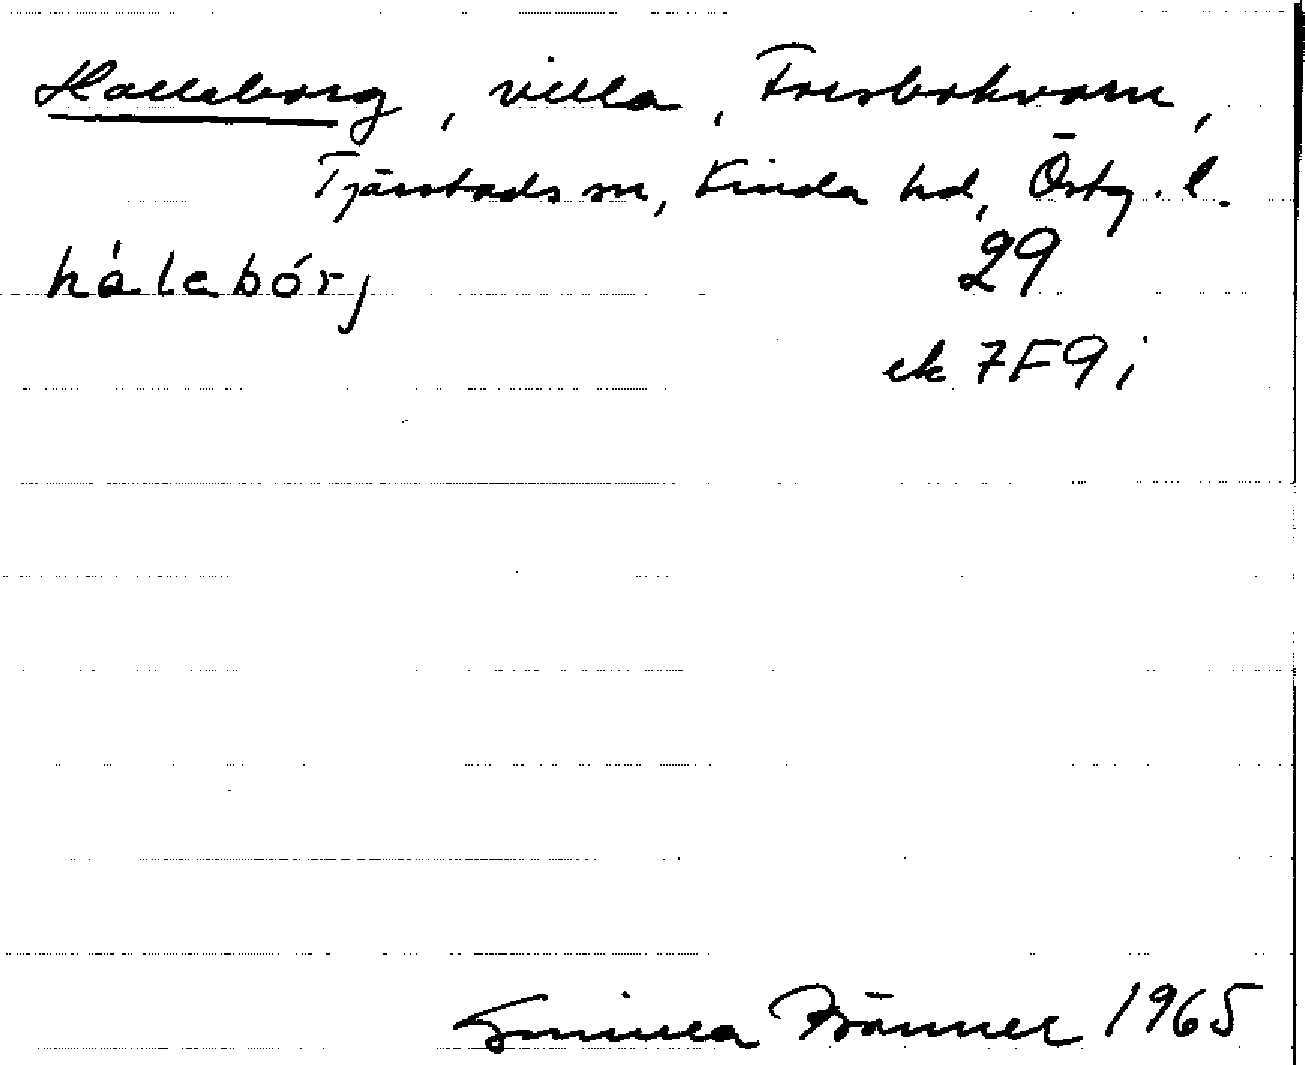 Halleborg, villa, Forsbokvarn,
Tjärstads sn, Kinda hd, Östg. l.
hálebórj
29
ek 7F9i
Gunnea Brånner 1965